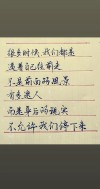 很多时候,我们都是
逼着自己往前走
不是前面的风景
有多迷人
而是幕后的现实
不允许我们停下来